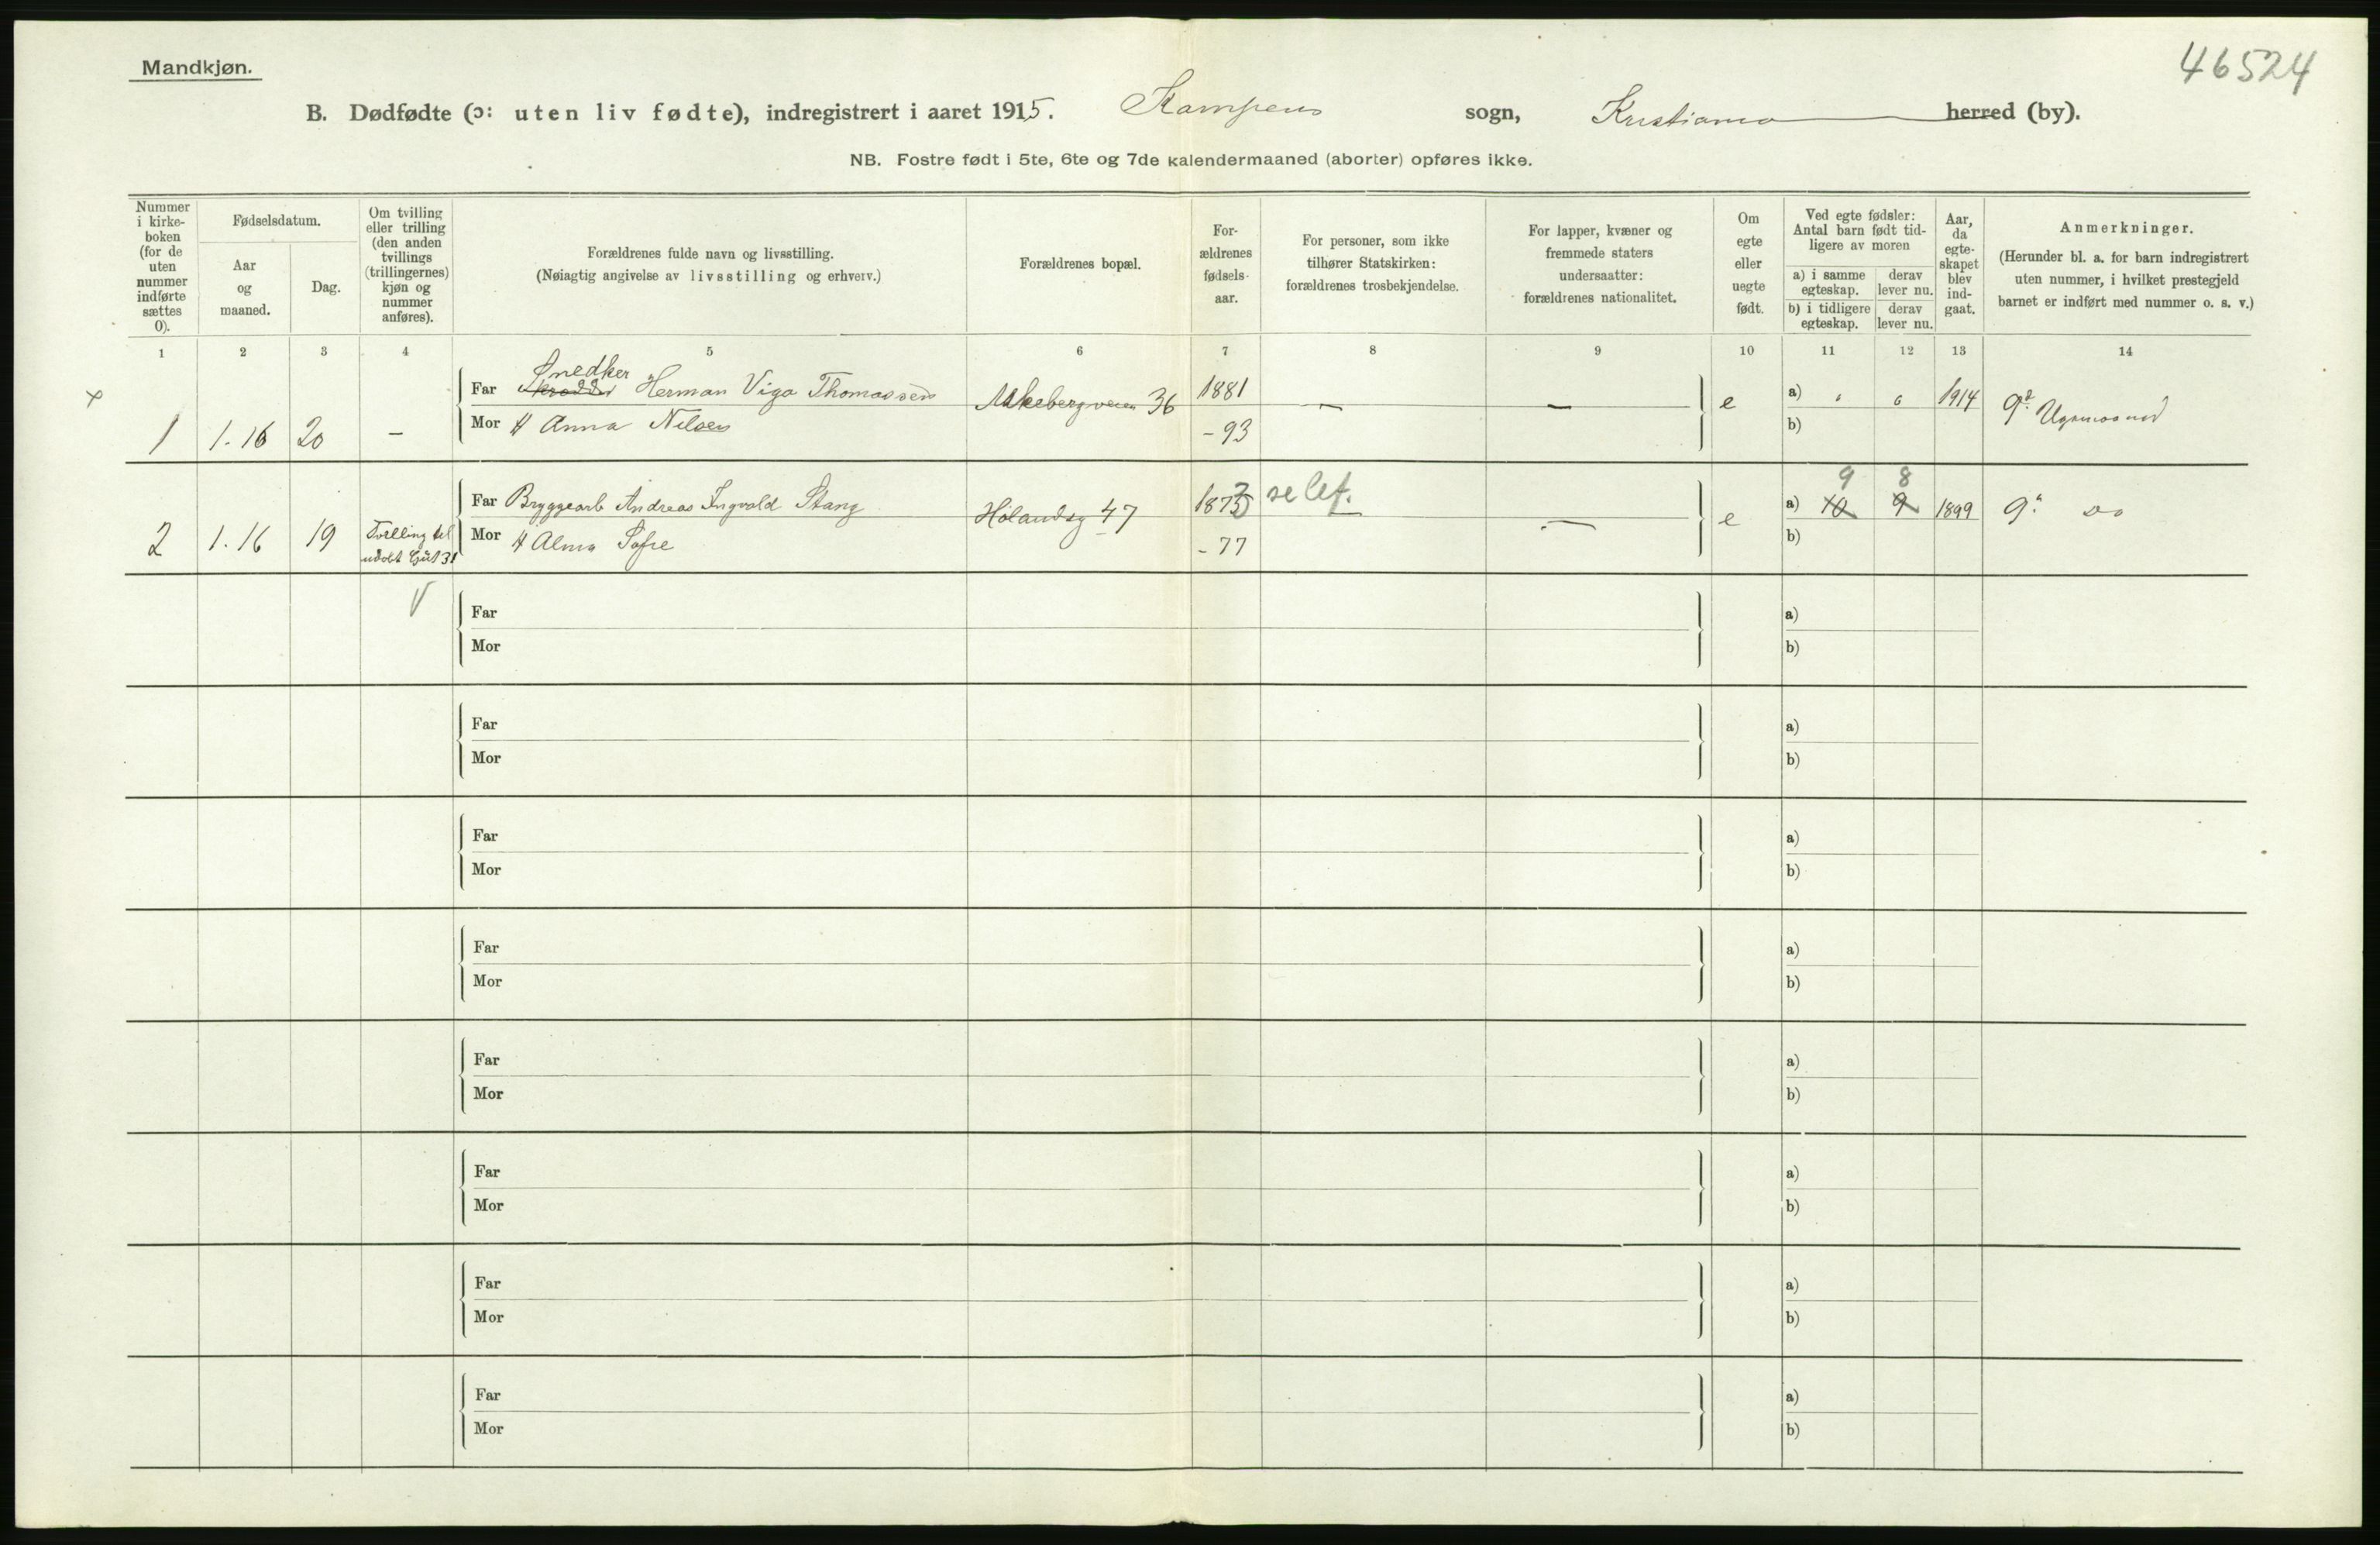 Mandkjøn.
46524
B. Dødfødte (ɔ: uten liv fødte), indregistrert i aaret 1915. Kampens sogn, Kristiania herred (by).
NB. Fostre født i 5te, 6te og 7de kalendermaaned (aborter) opføres ikke.
Nummer i kirke-boken (for de uten nummer indførte sættes 0).
Fødselsdatum.
Aar og maaned.
Dag.
Om tvilling eller trilling (den anden tvillings (trillingernes) kjøn og nummer anføres).
Forældrenes fulde navn og livsstilling.
(Nøiagtig angivelse av livsstilling og erhverv.)
Forældrenes bopæl.
For-ældrenes fødsels-aar.
For personer, som ikke tilhører Statskirken: forældrenes trosbekjendelse.
For lapper, kvæner og fremmede staters undersaatter: forældrenes nationalitet.
Om egte eller uegte født.
Ved egte fødsler: Antal barn født tid-ligere av moren
a) i samme egteskap.
derav lever nu.
b) i tidligere egteskap.
derav lever nu.
Aar, da egte-skapet blev ind-gaat.
Anmerkninger.
(Herunder bl. a. for barn indregistrert uten nummer, i hvilket prestegjeld barnet er indført med nummer o. s. v.)
1 2 3 4 5 6 7 8 9 10 11 12 13 14
Snedker
Far Herman Vigo Thomassen 1881 — — e a) 1914
1 1.16 20 — Mor H Anna Nilsen 36 -93 b)
9 8
Far Bryggearb Andreas Ingvald Stang Hølandsg 47 1873 se lef. — e a) 10 9 1899 9. do
2 1.16 19 Tvilling til Mor H Alma Sofie -77 b)
Far a)
Mor b)
Far a)
Mor b)
Far a)
Mor b)
Far a)
Mor b)
Far a)
Mor b)
Far a)
Mor b)
Far a)
Mor b)
Far a)
Mor b)